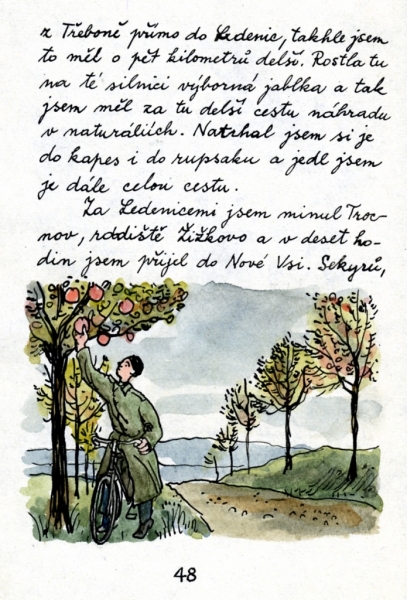 z Třeboně přímo do Ledenic, takhle jsem
to měl o pět kilometrů delší. Rostla tu
na té silnici výborná jablka a tak
jsem měl za tu delší cestu náhradu
v naturáliích. Natrhal jsem si je
do kapes i do rupsaku a jedl jsem
je dále celou cestu.
Za Ledenicemi jsem minul Troc-
nov, rodiště Žižkovo a v deset ho-
din jsem přijel do Nové Vsi. Sekyrů,
48